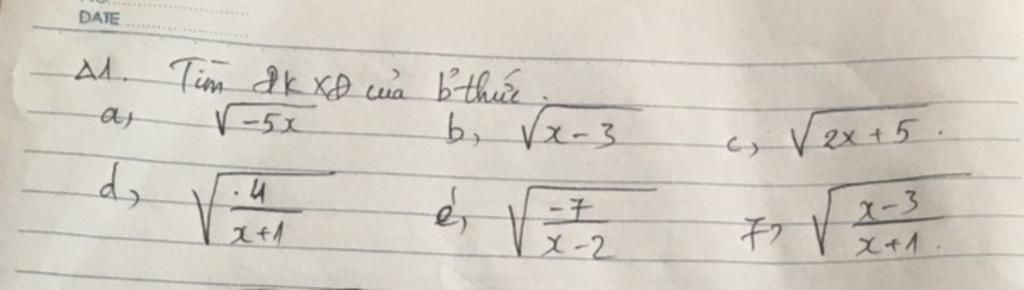 DATE
Δ1. Tìm ĐKXĐ của b'thức.
a, √(-5x) b, √(x-3) c, √(2x+5).
d, √(4/(x+1)) e, √(-7/(x-2)) f, √((x-3)/(x+1)).